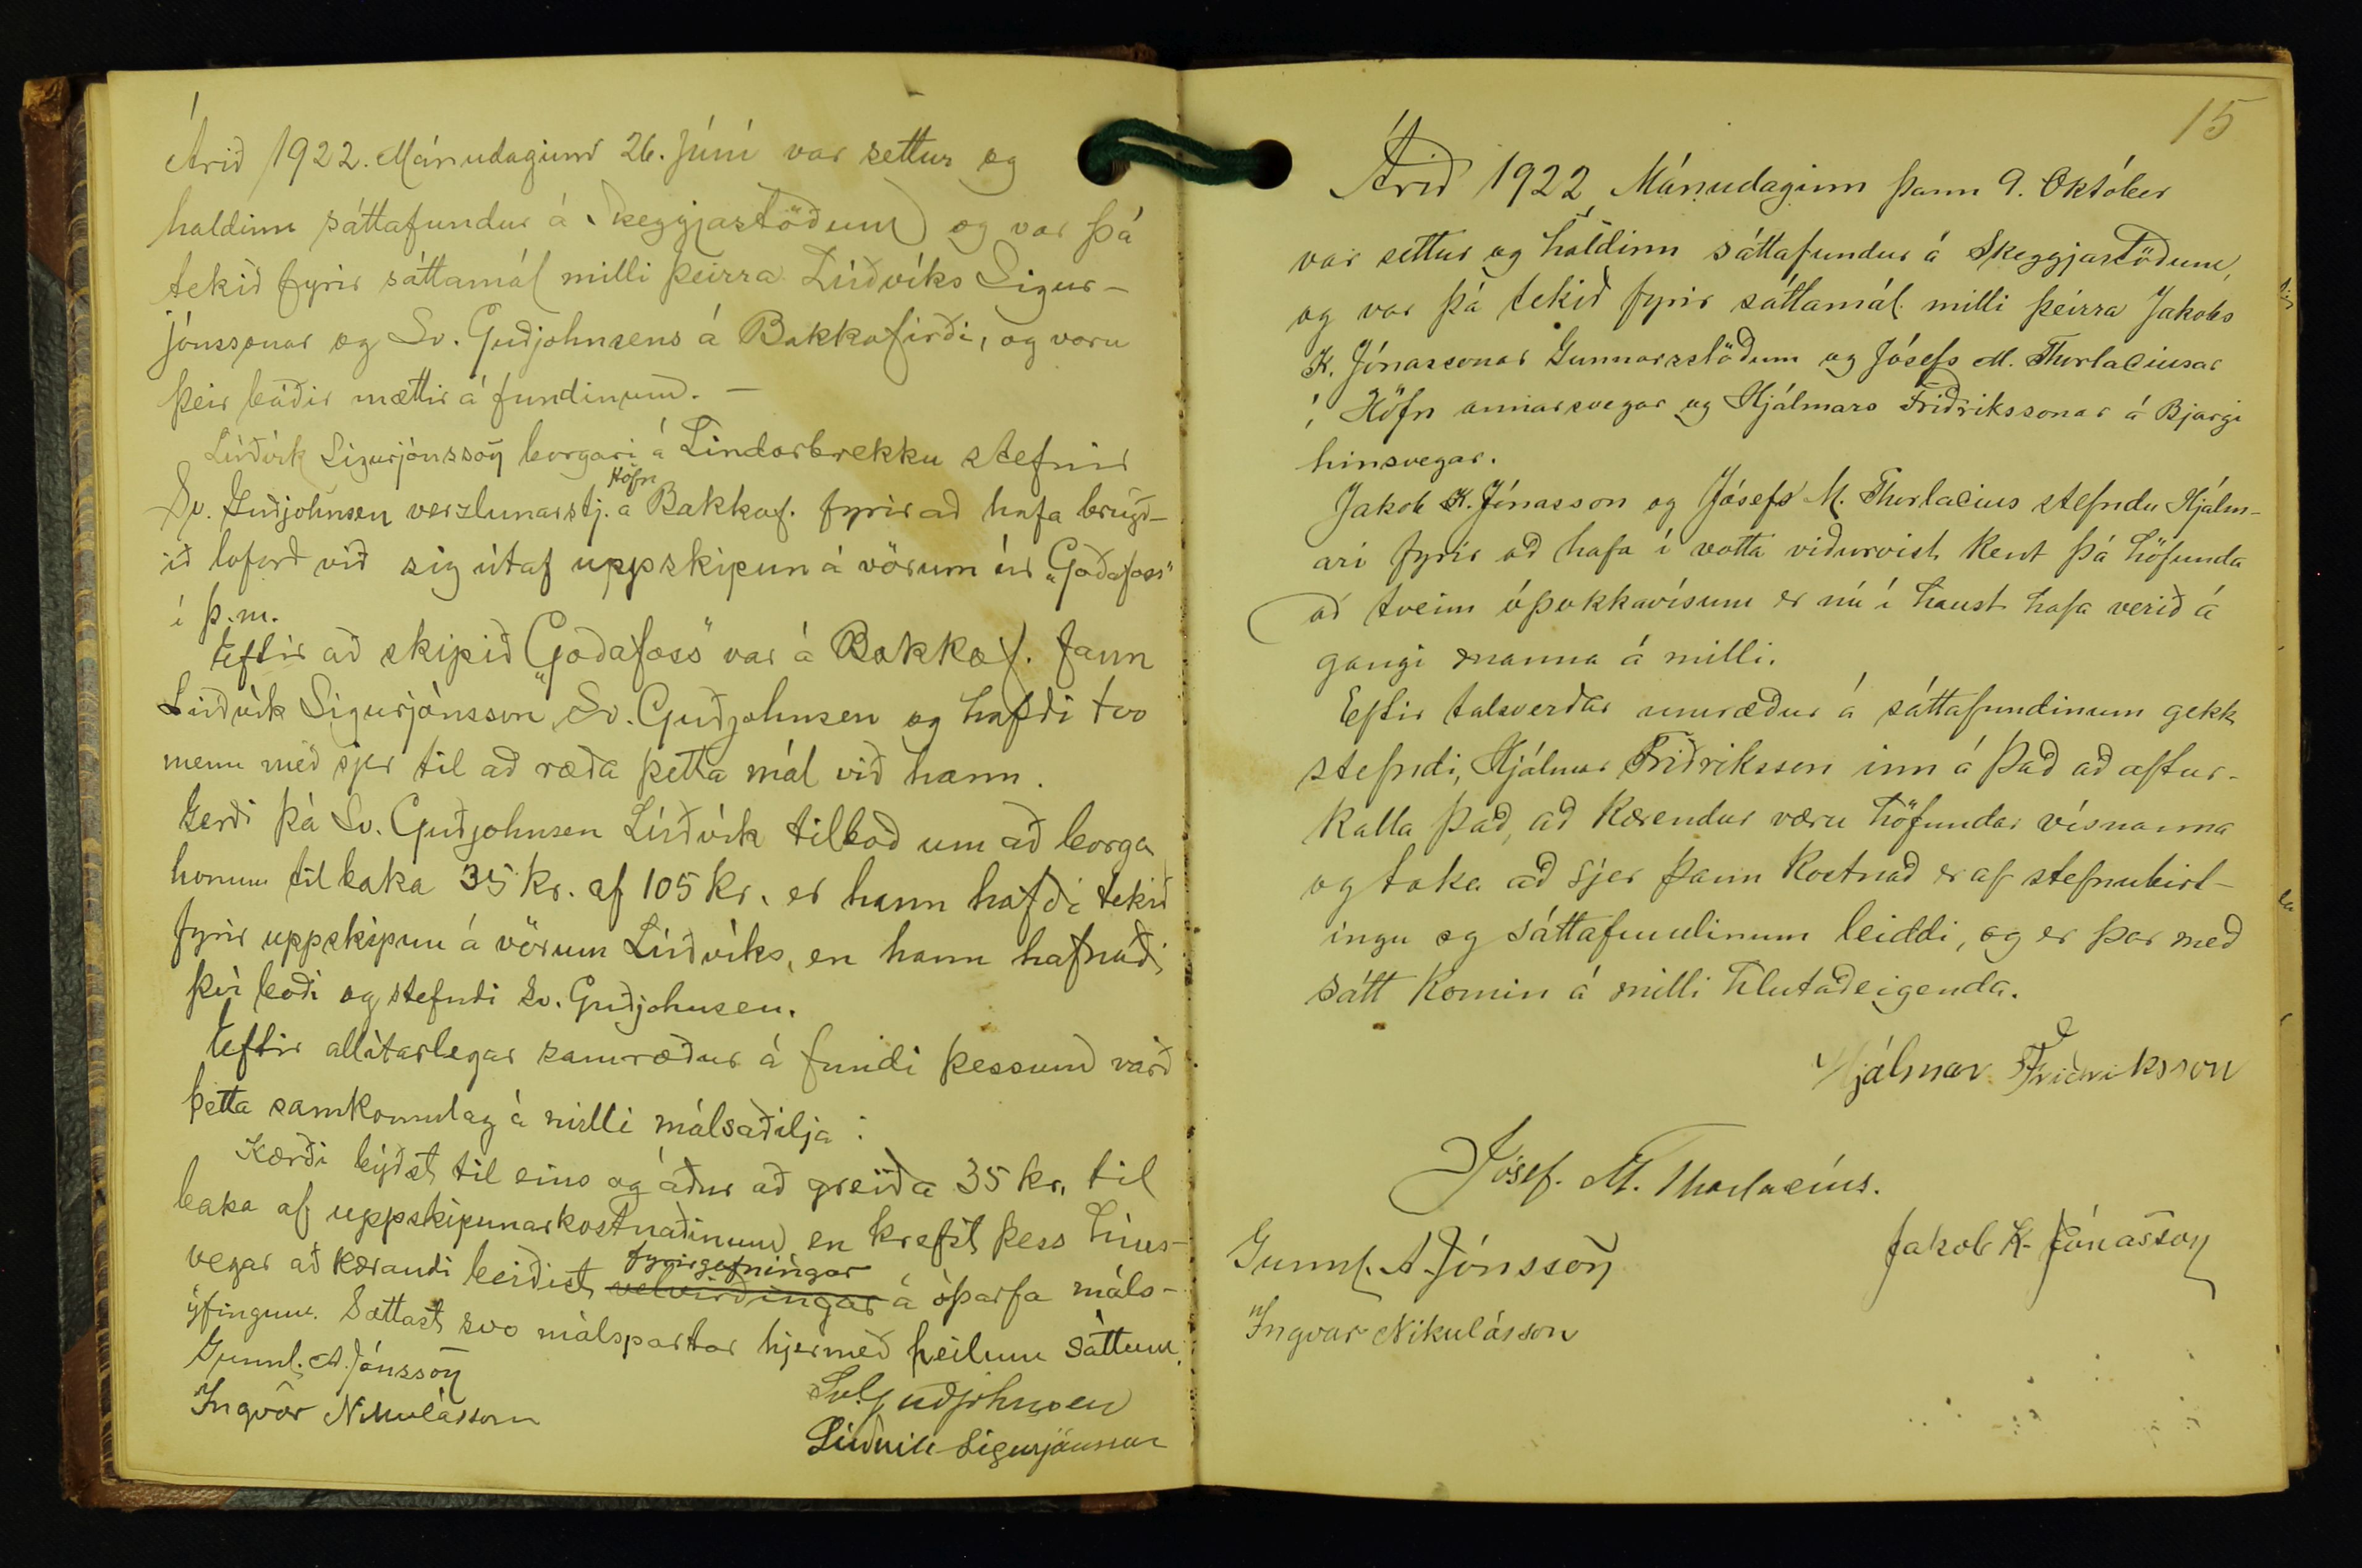 Árið 1922. Mánudaginn 26. Júní var settur og
haldinn sáttafundur á Skeggjastöðum og var þá
tekið fyrir sáttamál milli þeirra Lúðvíks Sigur-
jónssonar og Sv. Guðjohnsens á Bakkafirði, og voru
þeir báðir mættir á fundinum. —
Lúðvík Sigurjónsson borgari á Lindarbrekku stefnir
Höfn
Sv. Guðjohnsen verzlunarstj. á Bakkaf. fyrir að hafa brugð-
ið loforð við sig útaf uppskipun á vörum úr „Goðafoss"
í þ.m.
Eftir að skipið „Goðafoss" var á Bakkaf. fann
Lúðvík Sigurjónsson Sv. Guðjohnsen og hafði tvo
menn með sjer til að ræða þetta mál við hann.
Gerði þá Sv. Guðjohnsen Lúðvík tilboð um að borga
honum til baka 35 kr. af 105 kr. er hann hafði tekið
fyrir uppskipun á vörum Lúðvíks, en hann hafnaði
því boði og stefndi Sv. Guðjohnsen.
Eftir allítarlegar samræður á fundi þessum varð
þetta samkomulag á milli málsaðilja:
Kærði býðst til eins og áður að greiða 35 kr. til
baka af uppskipunarkostnaðinum en krefst þess hins-
fyrirgefningar
vegar að kærandi beiðist velvirðingar á óþarfa máls-
ýfingum. Sættast svo málspartar hjermeð heilum sáttum.
Gunnl. A. Jónsson
Ingvar Nikulásson
Sv. Guðjohnsen
Lúðvík Sigurjónsson
15
Árið 1922, Mánudaginn þann 9. Október
var settur og haldinn sáttafundur á Skeggjastöðum,
og var þá tekið fyrir sáttamál milli þeirra Jakobs
K. Jónassonar Gunnarsstöðum og Jósefs M. Thorlaciusar
í Höfn annarsvegar og Hjálmars Friðrikssonar á Bjargi
hinsvegar.
Jakob K. Jónasson og Jósefs M. Thorlacius stefndu Hjálm-
ari fyrir að hafa í votta viðurvist kent þá höfunda
að tveim óþokkavísum er nú í haust hafa verið á
gangi manna á milli.
Eftir talsverðar umræður á sáttafundinum gekk
stefndi, Hjálmar Friðriksson inn á það að aftur-
kalla það, að kærendur væru höfundar vísnanna
og taka að sjer þann kostnað er af stefnubirt-
ingu og sáttafundinum leiddi, og er þar með
sátt komin á milli hlutaðeigenda.
Hjálmar Friðriksson
Jósef. M. Thorlacíus.
Jakob K. Jónasson
Gunnl. A. Jónsson
Ingvar Nikulásson